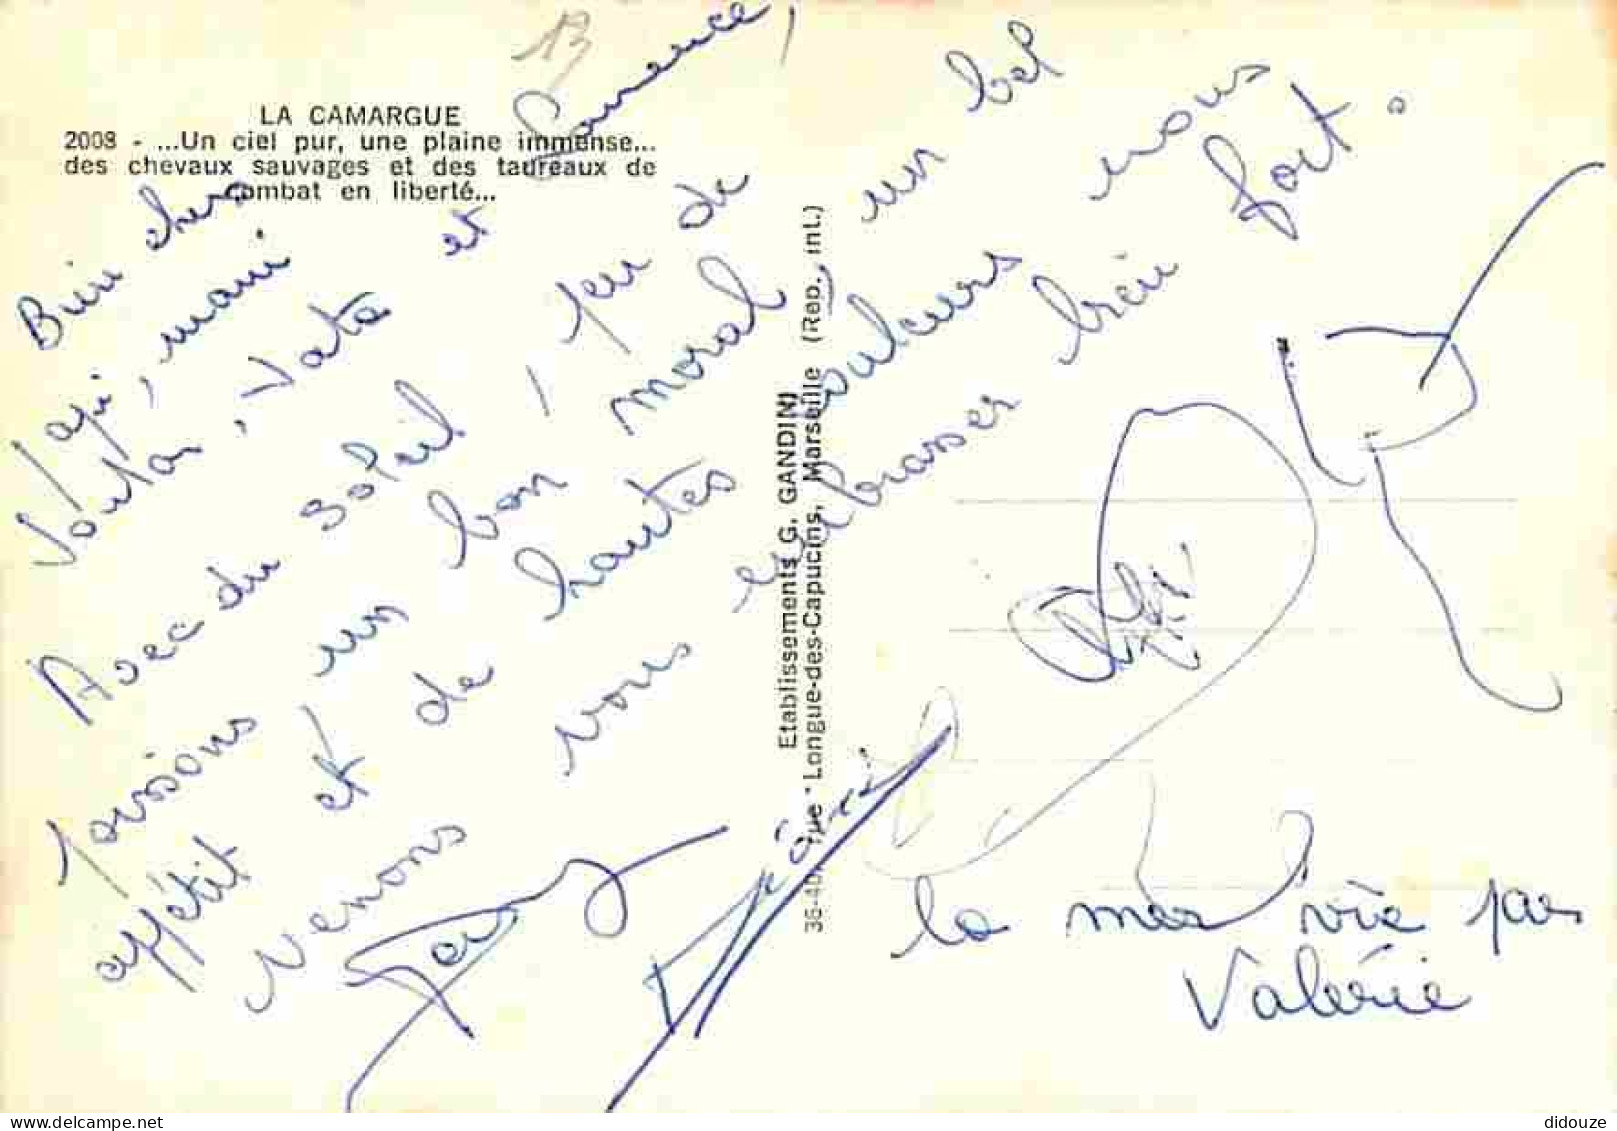 13
LA CAMARGUE
2008 - ...Un ciel pur, une plaine immense...
des chevaux sauvages et des taureaux de
combat en liberté...
Bien chers
papi, mami et
Tonton, Tata
Avec du soleil, peu de
Florence,
jouissons un bon moral, un bel
appétit et de hautes couleurs nous
venons vous embrasser bien fort.
Etablissements G. GANDINI
36-40, rue Longue-des-Capucins, Marseille (Rep. int.)
la mer vue par
Valérie
didouze